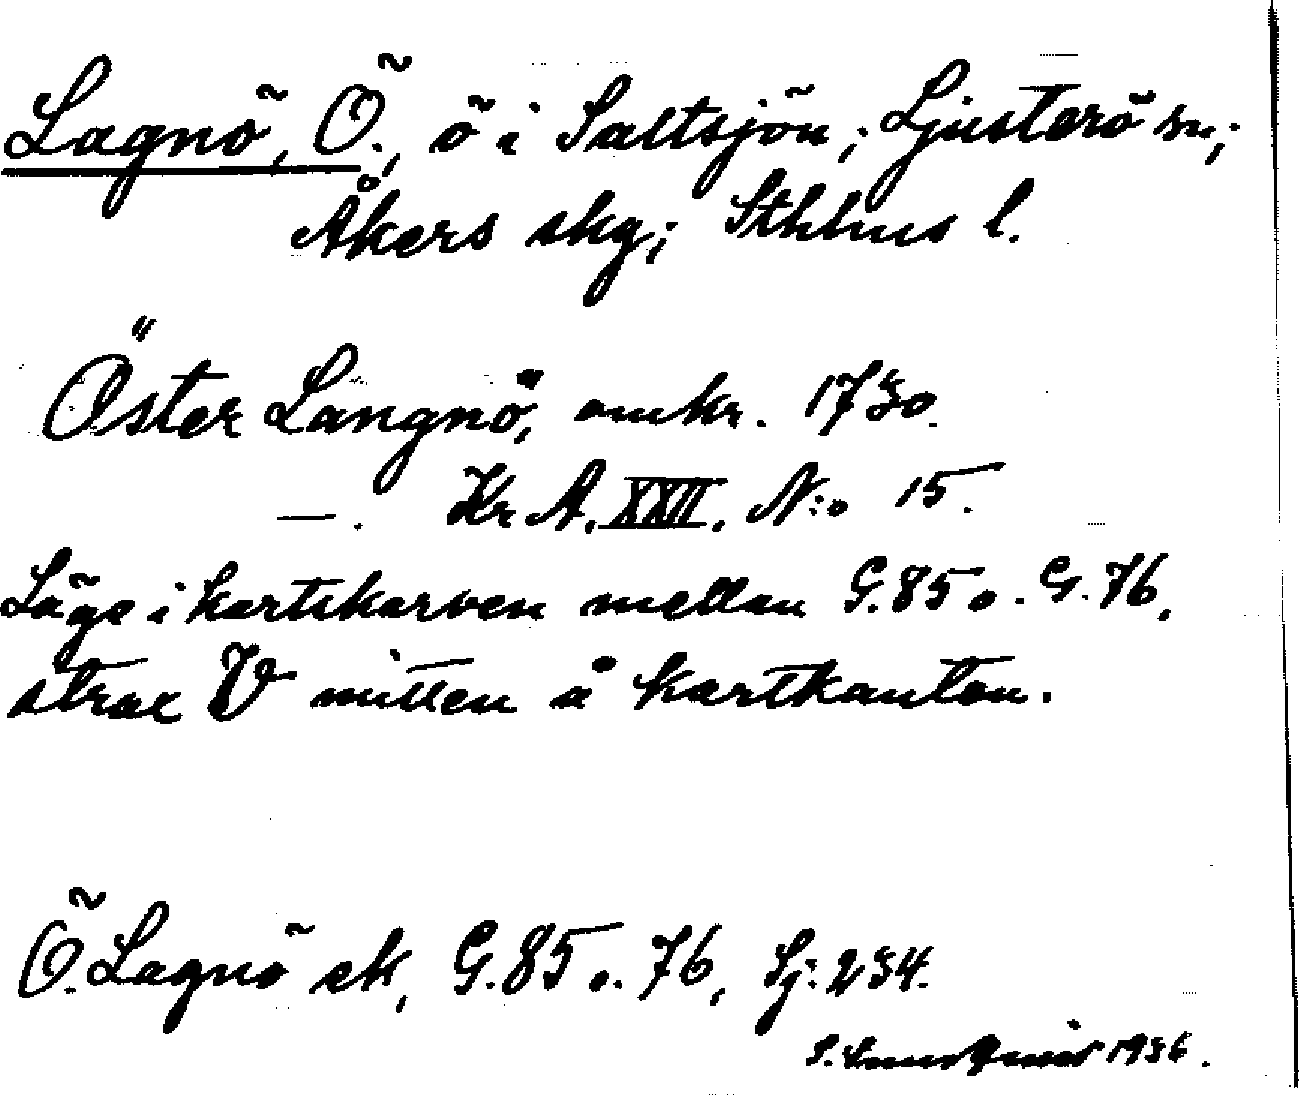 Lagnö, Ö., ö i Saltsjön; Ljusterö sn;
Åkers skg; Sthlms l.
Öster Langnö, omkr. 1730.
—. Kr A. XXII. N:o 15.
Läge i kartskarven mellan G.85 o. G.76,
strax V mitten å kartkanten.
Ö. Lagnö ek, G.85 o. 76, Sj: 234.
1936.